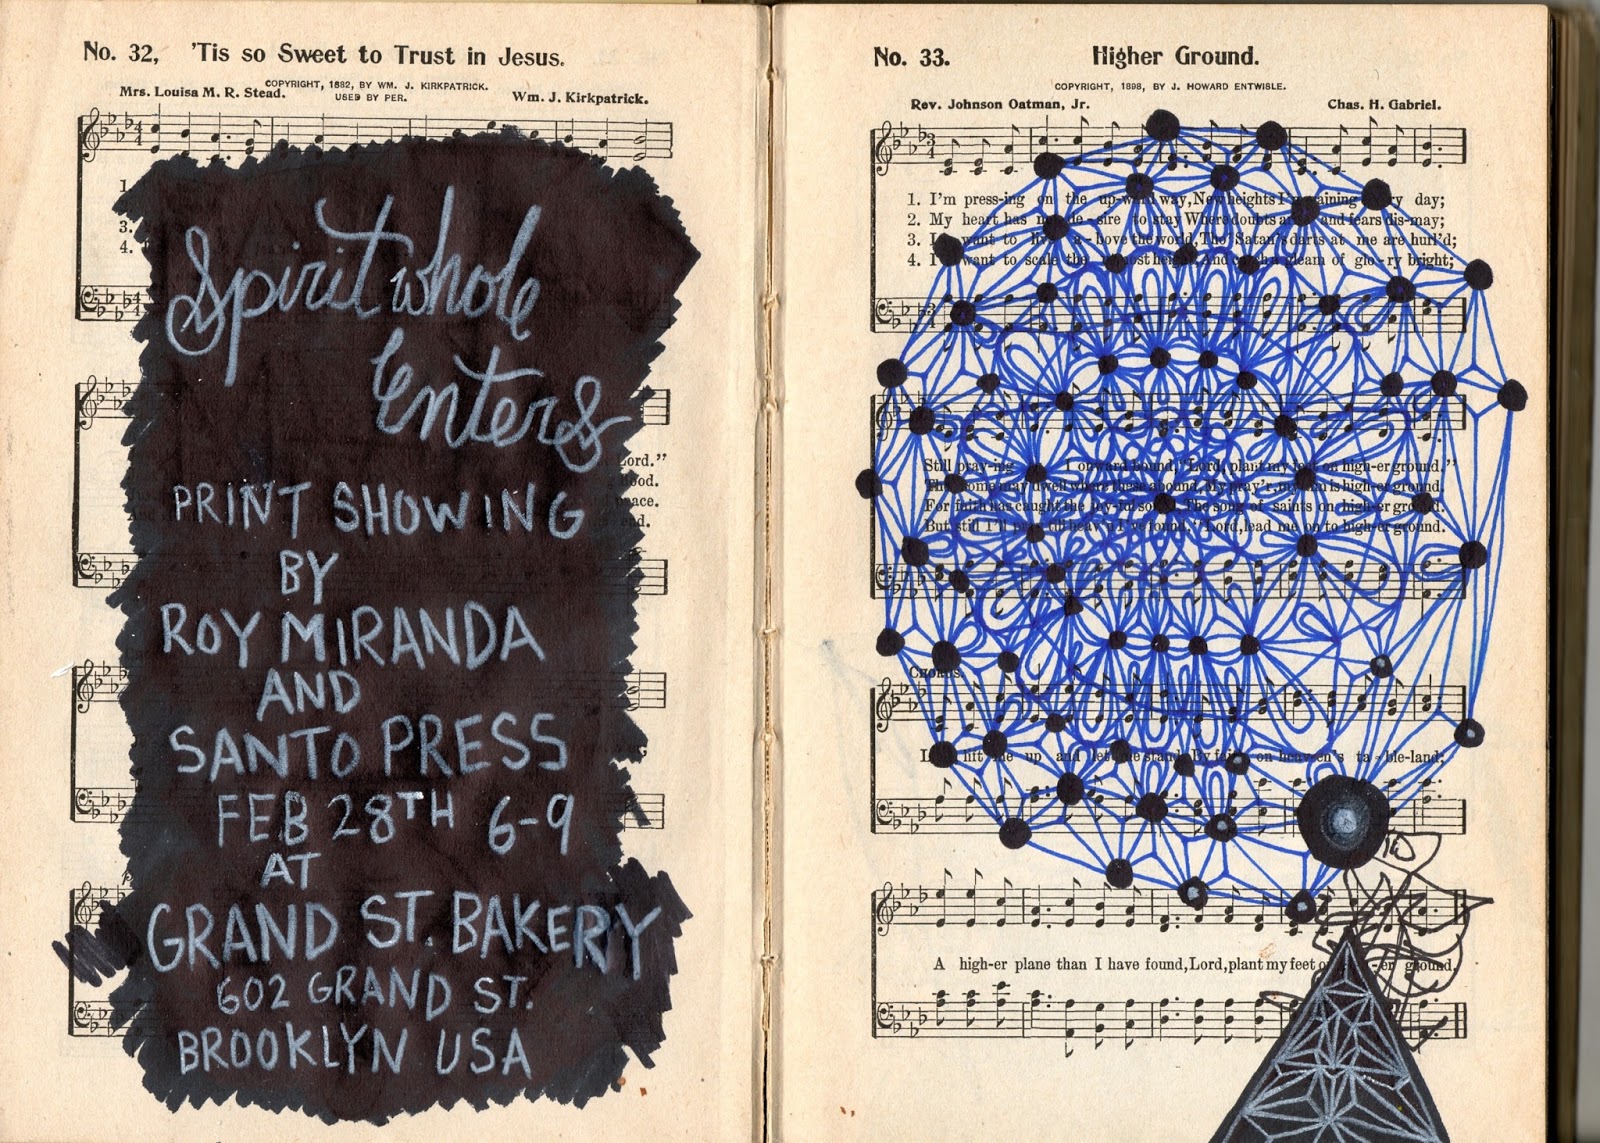 No. 32, 'Tis so Sweet to Trust in Jesus.
COPYRIGHT, 1882, BY WM. J. KIRKPATRICK.
USED BY PER.
Mrs. Louisa M. R. Stead. Wm. J. Kirkpatrick.
1.
3.
4.
Spirit whole
Enters
PRINT SHOWING
BY
ROY MIRANDA
AND
SANTO PRESS
FEB 28TH 6-9
AT
GRAND ST. BAKERY
602 GRAND ST.
BROOKLYN USA
Lord."
peace.
end.
No. 33. Higher Ground.
COPYRIGHT, 1898, BY J. HOWARD ENTWISLE.
Rev. Johnson Oatman, Jr. Chas. H. Gabriel.
1. I'm press-ing on the up-ward way, New heights I'm day;
2. My heart has de-sire to stay Where doubts and fears dis-may;
3. I want to live a-bove the world, Tho' Satan's darts at me are hurl'd;
4. I want to scale the height, And gleam of glo-ry bright;
Still pray-ing I onward bound, "Lord, plant my feet on high-er ground."
some may dwell where these abound, My pray'r, is high-er ground.
For faith has caught the joy-ful The song of saints on high-er ground.
But still I'll pray till heav'n I've found, "Lord, lead me on to high-er ground.
CHORUS.
me up and let me stand, By faith on heav-en's ta-ble-land;
A high-er plane than I have found, Lord, plant my feet ground.